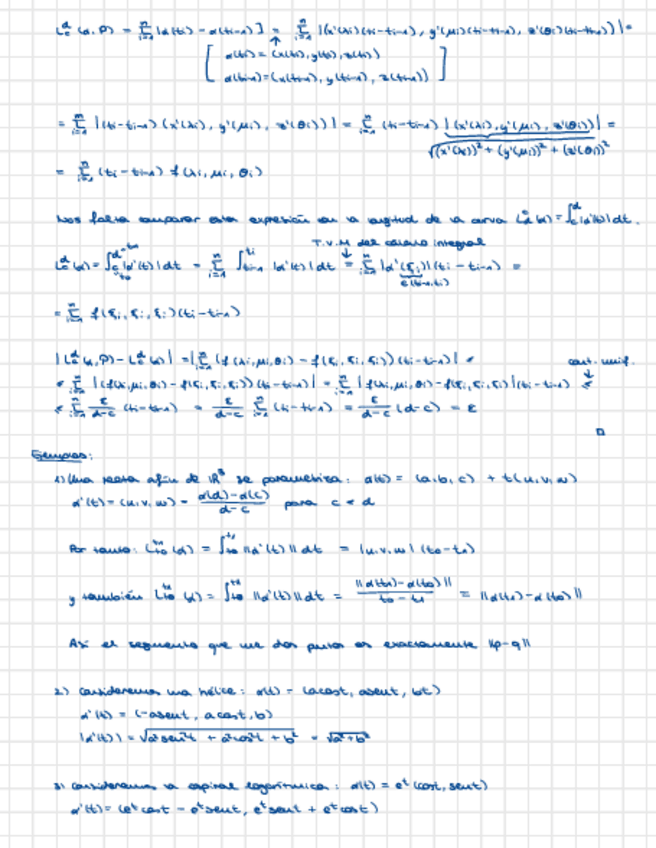 L_c^d(α,P) = Σ_{i=1}^n |α(ti) - α(ti-1)| = Σ_{i=1}^n |(x'(λi)(ti-ti-1), y'(μi)(ti-ti-1), z'(θi)(ti-ti-1))| =
[ α(ti) = (x(ti), y(ti), z(ti))
α(ti-1) = (x(ti-1), y(ti-1), z(ti-1)) ]
= Σ_{i=1}^n |(ti-ti-1)(x'(λi), y'(μi), z'(θi))| = Σ_{i=1}^n (ti-ti-1) |(x'(λi), y'(μi), z'(θi))| =
√((x'(λi))² + (y'(μi))² + (z'(θi))²)
= Σ_{i=1}^n (ti-ti-1) f(λi, μi, θi)
Nos falta comparar esta expresión con la longitud de la curva L_c^d(α) = ∫_c^d |α'(t)| dt.
T.V.M del cálculo integral
L_c^d(α) = ∫_{c=t0}^{d=tn} |α'(t)| dt = Σ_{i=1}^n ∫_{ti-1}^{ti} |α'(t)| dt = Σ_{i=1}^n |α'(ξi)|(ti-ti-1) =
∈(ti-1,ti)
= Σ_{i=1}^n f(ξi, ξi, ξi)(ti-ti-1)
|L_c^d(α,P) - L_c^d(α)| = |Σ_{i=1}^n (f(λi,μi,θi) - f(ξi,ξi,ξi))(ti-ti-1)| ≤
cont. unif.
≤ Σ_{i=1}^n |(f(λi,μi,θi) - f(ξi,ξi,ξi))(ti-ti-1)| = Σ_{i=1}^n |f(λi,μi,θi) - f(ξi,ξi,ξi)|(ti-ti-1) ≤
≤ Σ_{i=1}^n ε/(d-c) (ti-ti-1) = ε/(d-c) Σ_{i=1}^n (ti-ti-1) = ε/(d-c) (d-c) = ε
□
Ejemplos:
1) Una recta afín de ℝ³ se parametriza: α(t) = (a,b,c) + t(u,v,w)
α'(t) = (u,v,w) = (α(d)-α(c))/(d-c) para c < d
Por tanto: L_{t0}^{t1}(α) = ∫_{t0}^{t1} ||α'(t)|| dt = |u,v,w| (t0-t1)
y también L_{t0}^{t1}(α) = ∫_{t0}^{t1} ||α'(t)|| dt = ||α(t1)-α(t0)||/(t0-t1) = ||α(t1)-α(t0)||
Así el segmento que une dos puntos es exactamente ||p-q||
2) consideremos una hélice: α(t) = (acost, asent, bt)
α'(t) = (-asent, acost, b)
|α'(t)| = √(a²sen²t + a²cos²t + b²) = √(a²+b²)
3) consideremos la espiral logarítmica: α(t) = e^t (cost, sent)
α'(t) = (e^t cost - e^t sent, e^t sent + e^t cost)